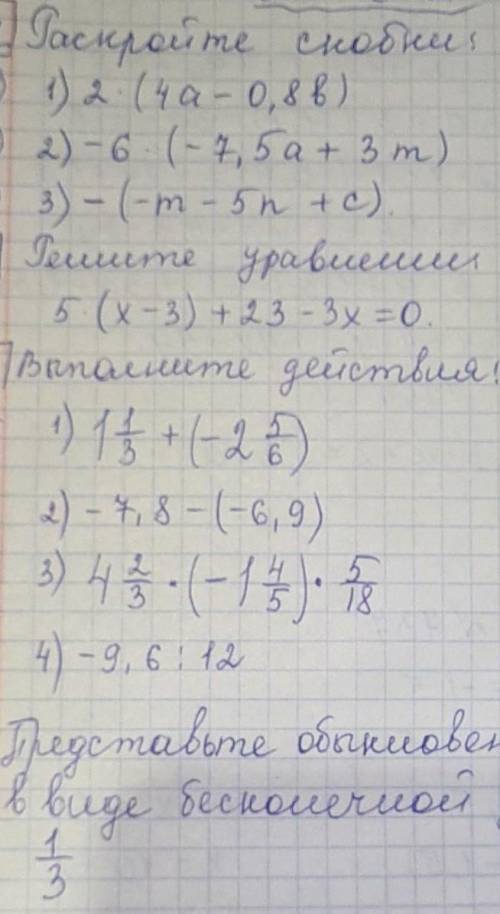 Раскройте скобки:
1) 2·(4a - 0,8b)
2) -6·(-7,5a + 3m)
3) -(-m - 5n + c).
Решите уравнения
5·(x-3)+23-3x=0.
Выполните действия:
1) 1 1/3 + (-2 5/6)
2) -7,8-(-6,9)
3) 4 2/3 · (-1 4/5) · 5/18
4) -9,6:12
Представьте обыкновен
в виде бесконечной
1/3